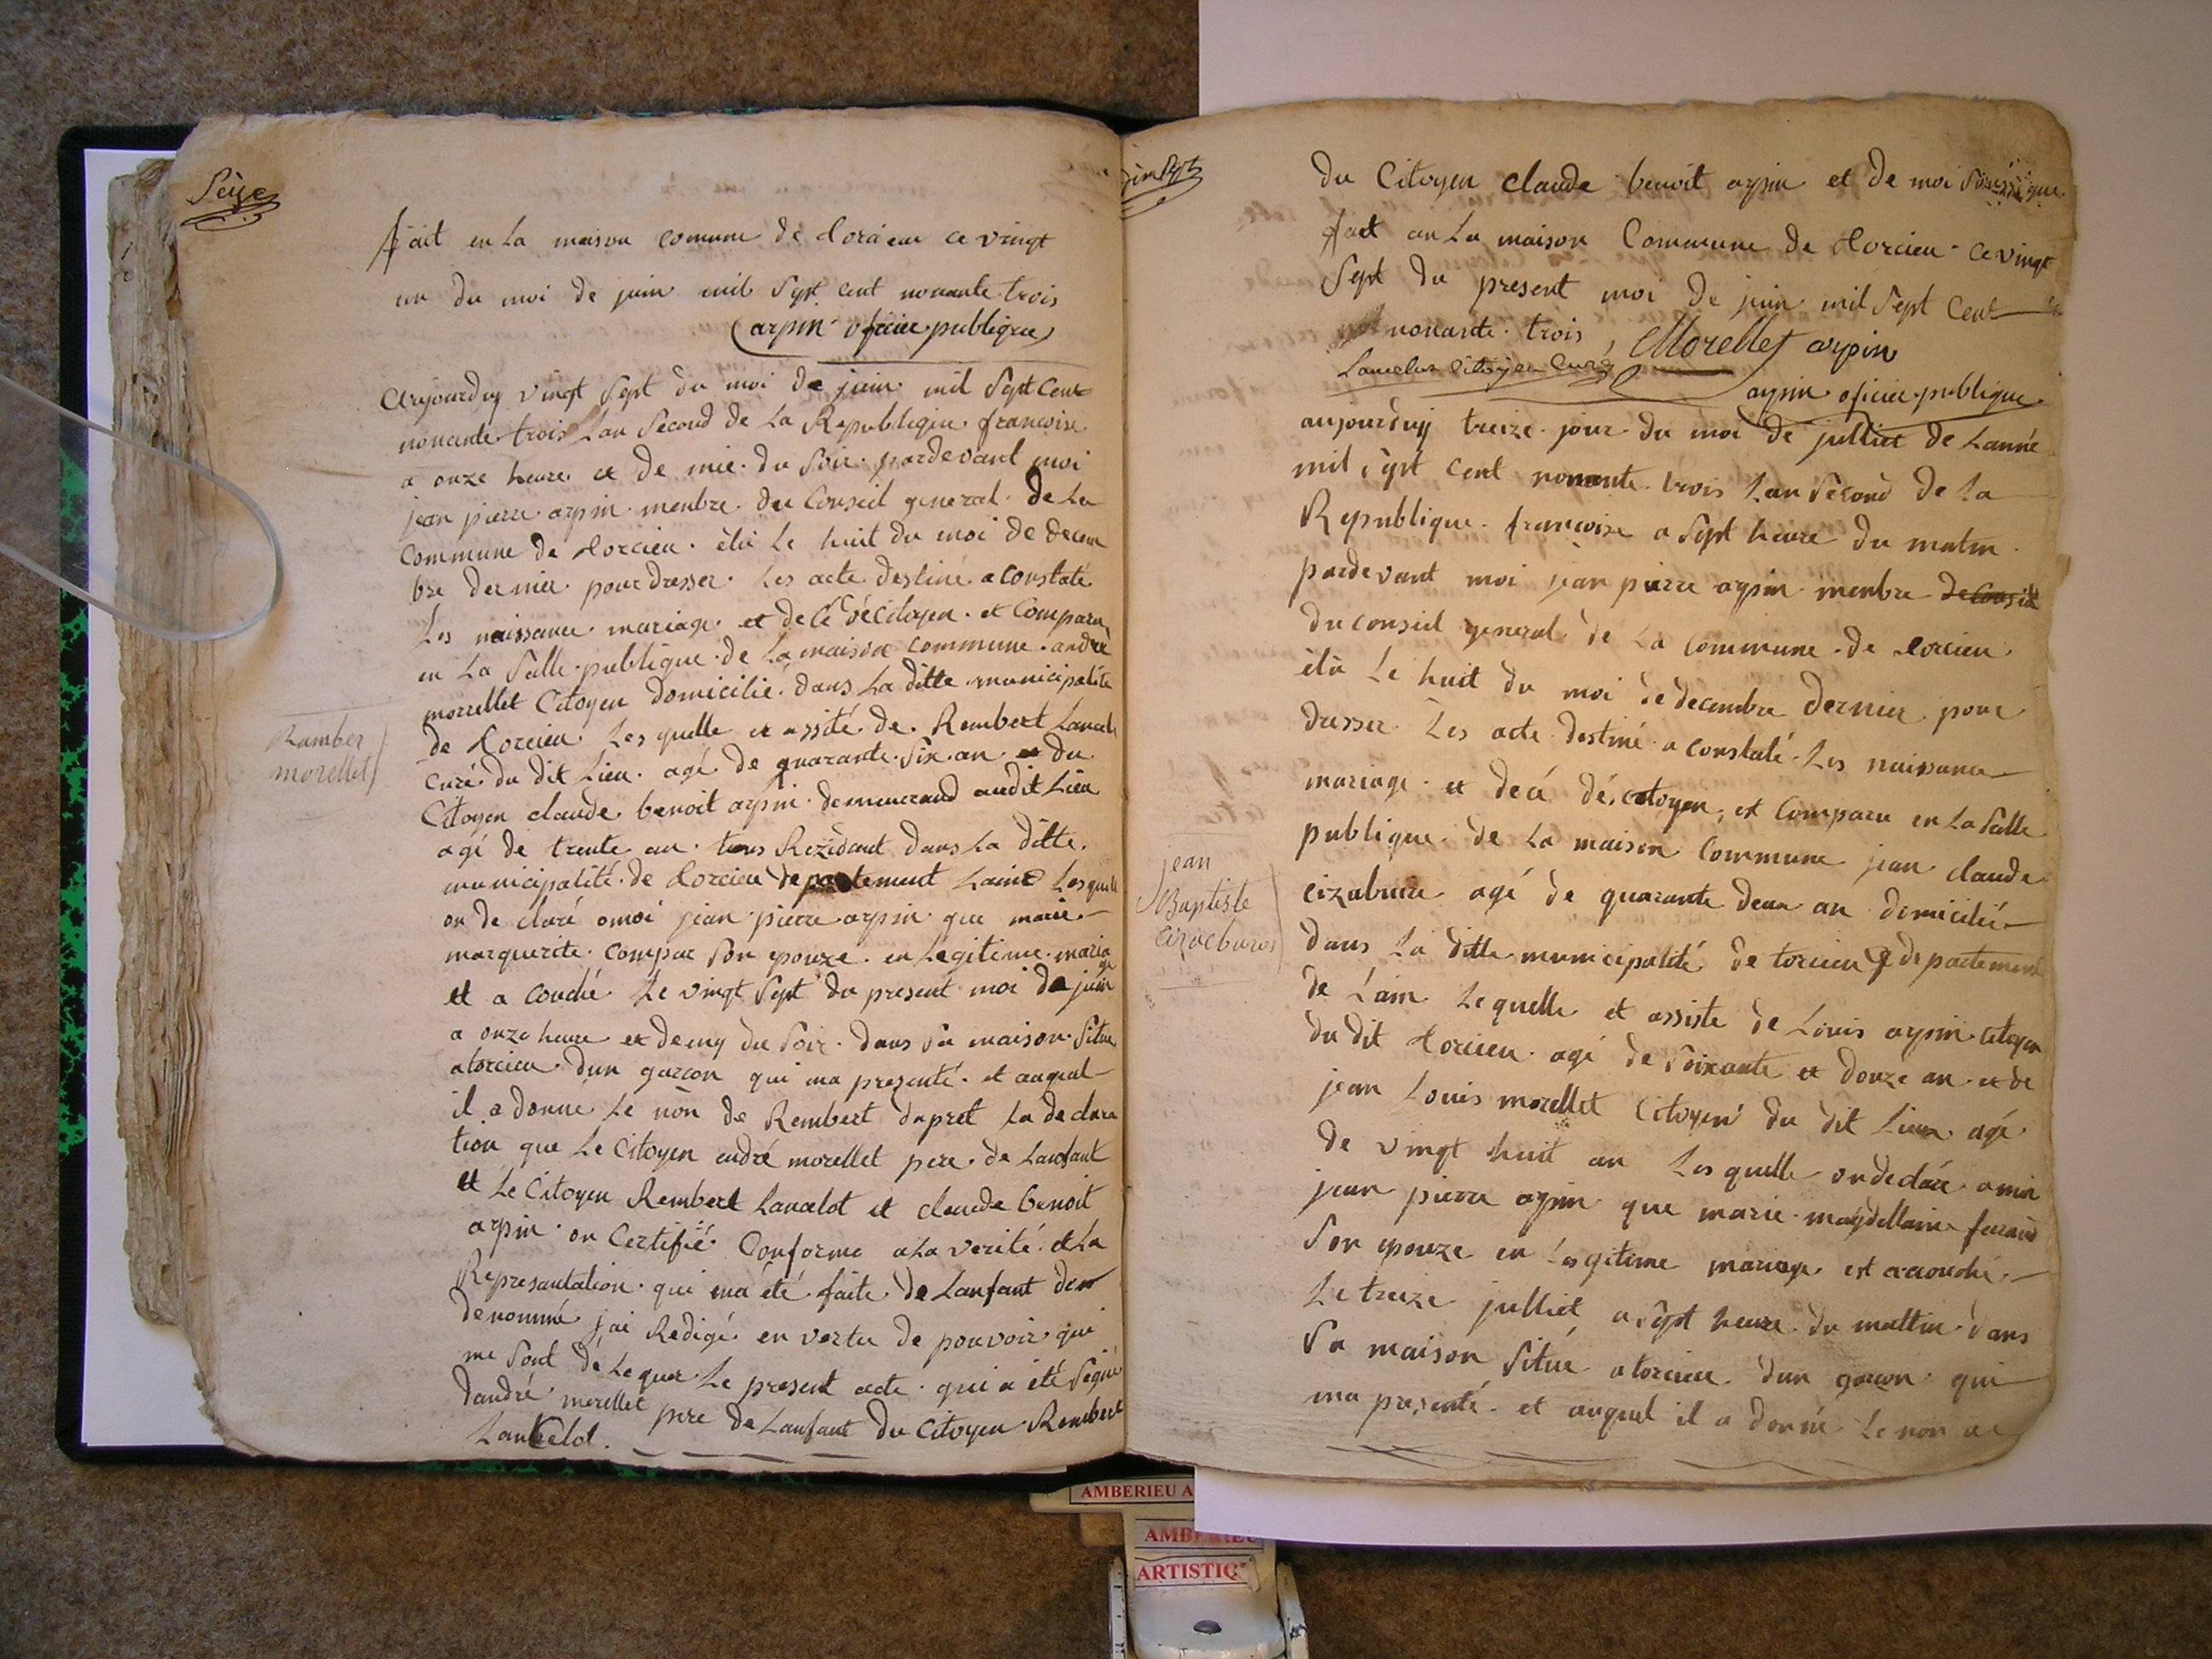 Seize
fait en La maison comune de torcieu ce vingt
un du moi de juin mil Sept cent nonante trois
arpin oficier publique
Aujourduy vingt Sept du moi de juin mil Sept Cent
nonante trois Lan Second de La Republique francoise
a onze heure et de mie du Soir pardevant moi
jean pierre arpin menbre du Conseil general de La
Commune de torcieu élu Le huit du moi de decem
bre dernier pour dresser Les acte destiné a constaté
Les naissance mariage et décé dé Citoyen et Comparu
en La Salle publique de La maison commune andré
morellet Citoyen domicilié dans La ditte municipalité
de torcieu Les quelle et assité de Rembert Lancelot
curé du dit Lieu agé de quarante Six an et du
Citoyen claude benoit arpin demeurand audit Lieu
agé de trente an tous Rezidant dans La ditte
municipalité de torcieu departement Laind Lesquelle
on de claré a moi jean pierre arpin que marie
marguerite compar Son epouze en Legitime mariage
et a couché Le vingt Sept du present moi de juin
a onze heure et demy du Soir dans Sa maison Situé
a torcieu dun garcon qui ma presenté et auquel
il a donné Le nõn de Rembert dapret La declara
tion que Le Citoyen andré morellet pere de Lanfant
et Le Citoyen Rembert Lancelot et claude benoit
arpin on Certifié Conforme a La verité et La
Represantation qui ma été faite de Lanfant
denommé jai Redigé en vertu de pouvoir qui
me Sont de Legué Le present acte qui a été Signé
dandré morellet pere de Lanfant du Citoyen Rembert
Lancelot.
Ramber
morellet
du Citoyen claude benoit arpin et de moi Soussigné
fait en La maison Commune de torcieu ce vingt
Sept du present moi de juin mil Sept Cent
nonante trois, Morellet arpin
Lancelot citoyen Curé
arpin oficier publique
aujourduij treize jour du moi de julliet de Lanné
mil Sept cent nonante trois Lan Second de La
Republique francoise a Sept heure du matin
pardevant moi jean pierre arpin menbre de Conseil
du conseil general de La commune de torcieu
élu Le huit du moi de decembre dernier pour
dresser Les acte destiné a constaté Les naissance
mariage et décé dé citoyen, et Comparu en La Salle
publique de La maison Commune jean claude
cizabuire agé de quarante deux an domicilié
dans La ditte municipalité de torcieu departement
de Lain Lequelle et assisté de Louis arpin citoyen
du dit torcieu agé de Soixante et douze an et de
jean Louis morellet Citoyen du dit Lieu agé
de vingt huit an Les quelle on declaré a moi
jean pierre arpin que marie magdellaine
Son epouze en Legitime mariage est accouché
Le treize julliet a Sept heure du mattin dans
Sa maison Situé a torcieu dun garcon qui
ma presenté et auquel il a donné Le non de
jean
Baptiste
AMBERIEU A
AMBERIEU
ARTISTIQ